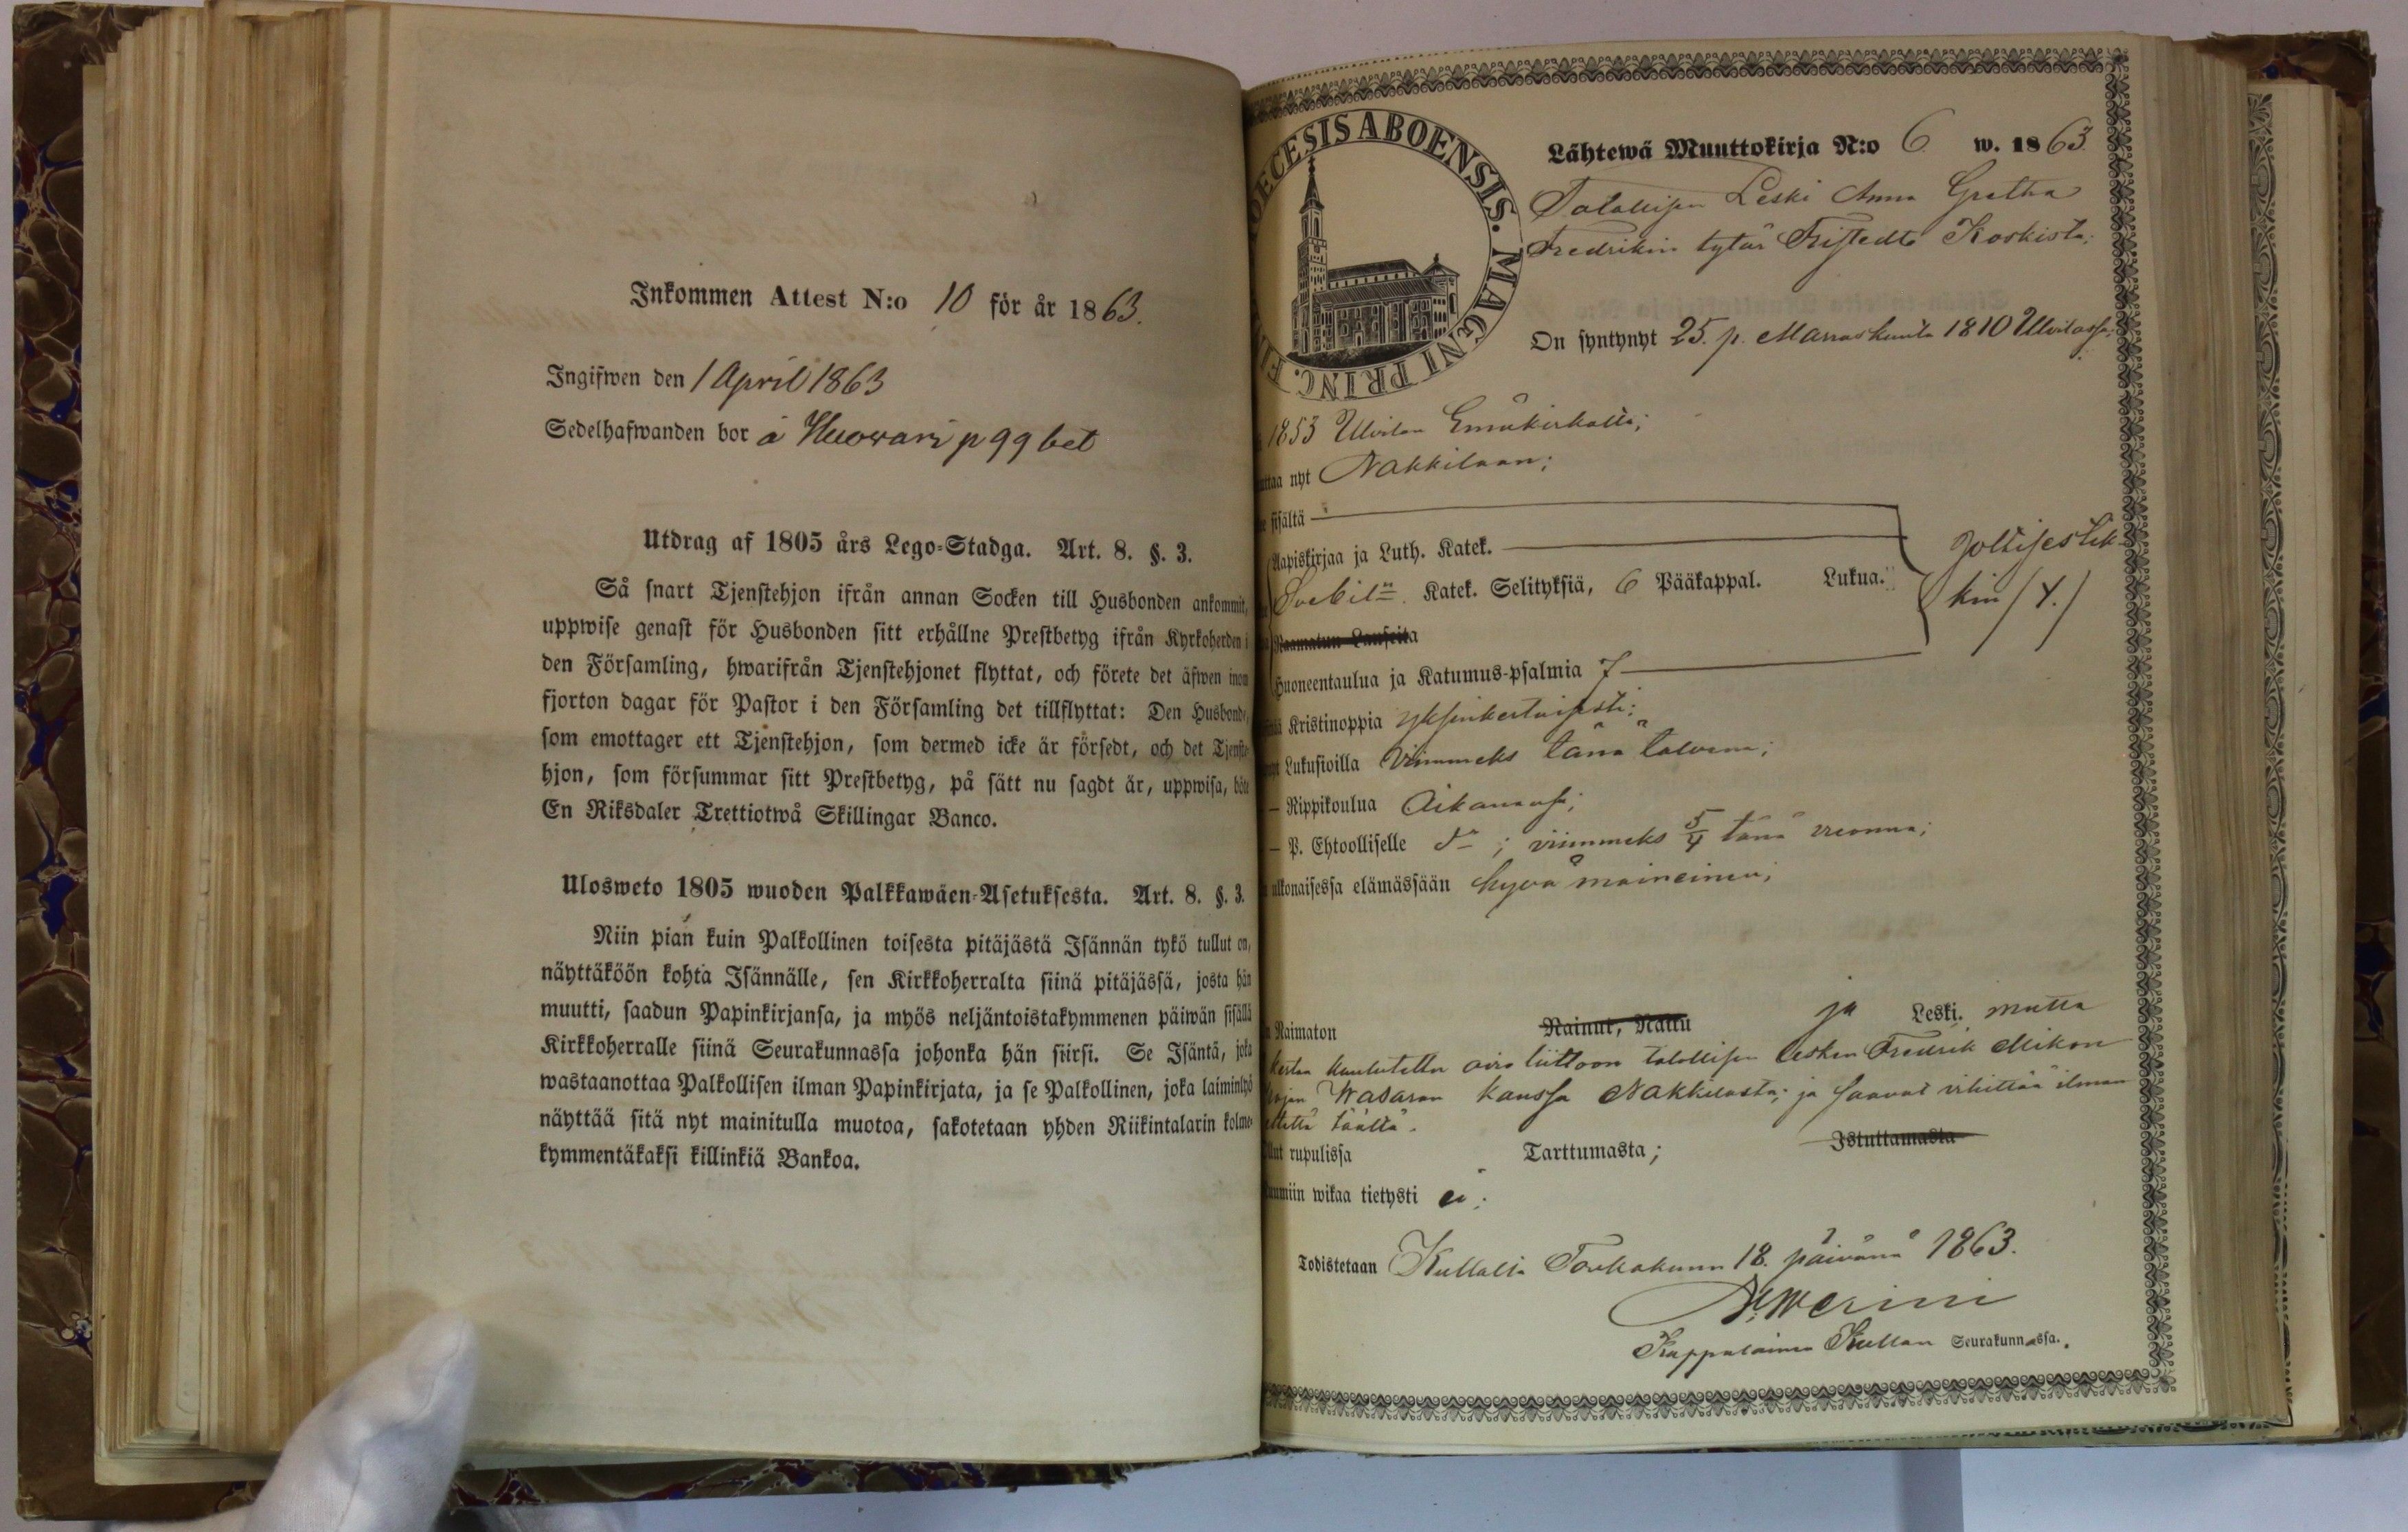 Inkommen Attest N:o 10 för år 1863.
Ingifwen den 1 April 1863
Sedelhafwanden bor å Huovari p 99 bet
Utdrag af 1805 års Lego-Stadga. Art. 8. §. 3.
Så snart Tjenstehjon ifrån annan Socken till Husbonden ankommit,
uppwise genast för Husbonden sitt erhållne Prestbetyg ifrån Kyrkoherden i
den Församling, hwarifrån Tjenstehjonet flyttat, och förete det äfwen inom
fjorton dagar för Pastor i den Församling det tillflyttat: Den Husbonde,
som emottager ett Tjenstehjon, som dermed icke är försedt, och det Tjenste-
hjon, som försummar sitt Prestbetyg, på sätt nu sagdt är, uppwisa, böte
En Riksdaler Trettiotwå Skillingar Banco.
Ulosweto 1805 wuoden Palkkawäen-Asetuksesta. Art. 8. §. 3.
Niin pian kuin Palkollinen toisesta pitäjästä Isännän tykö tullut on,
näyttäköön kohta Isännälle, sen Kirkkoherralta siinä pitäjässä, josta hän
muutti, saadun Papinkirjansa, ja myös neljäntoistakymmenen päiwän sisällä
Kirkkoherralle siinä Seurakunnassa johonka hän siirsi. Se Isäntä, joka
wastaanottaa Palkollisen ilman Papinkirjata, ja se Palkollinen, joka laiminlyö
näyttää sitä nyt mainitulla muotoa, sakotetaan yhden Riikintalarin kolme-
kymmentäkaksi killinkiä Bankoa.
OECESIS ABOENSIS. MAGNI PRINC. FI
Lähtewä Muuttokirja N:o 6. w. 1863.
Talollisen Leski Anna Gretha
Fredrikin tytär Fristedt Koskista;
On syntynyt 25. p. Marraskuuta 1810 Ulvilassa;
1853 Ulvilan Emäkirkolta;
uttaa nyt Nakkilaan;
sisältä
Aapiskirjaa ja Luth. Katek.
Svebil Katek. Selityksiä, 6 Pääkappal. Lukua.
Raamatun Lauseita
Huoneentaulua ja Katumus-psalmia 7
Kristinoppia yksinkertaisesti;
Lukusioilla Viimmeks tänä talvena;
– Rippikoulua Aikanansa;
– P. Ehtoolliselle do ; viimmeks 5/4 tänä vuonna;
ulkonaisessa elämässään hyvä maineinen;
Naimaton Nainut, Naitu ja Leski. mutta
kuulutettu avio liittoon talollisen lesken Fredrik Mikon
pojan Wasaran kanssa Nakkilasta; ja saavat vihittää ilman
täältä.
rupulissa Tarttumasta; Istuttamasta
wikaa tietysti ei;
Todistetaan Kullalla Toukokuun 18. päivänä 1863.
Kappalainen Kullan Seurakunnassa.